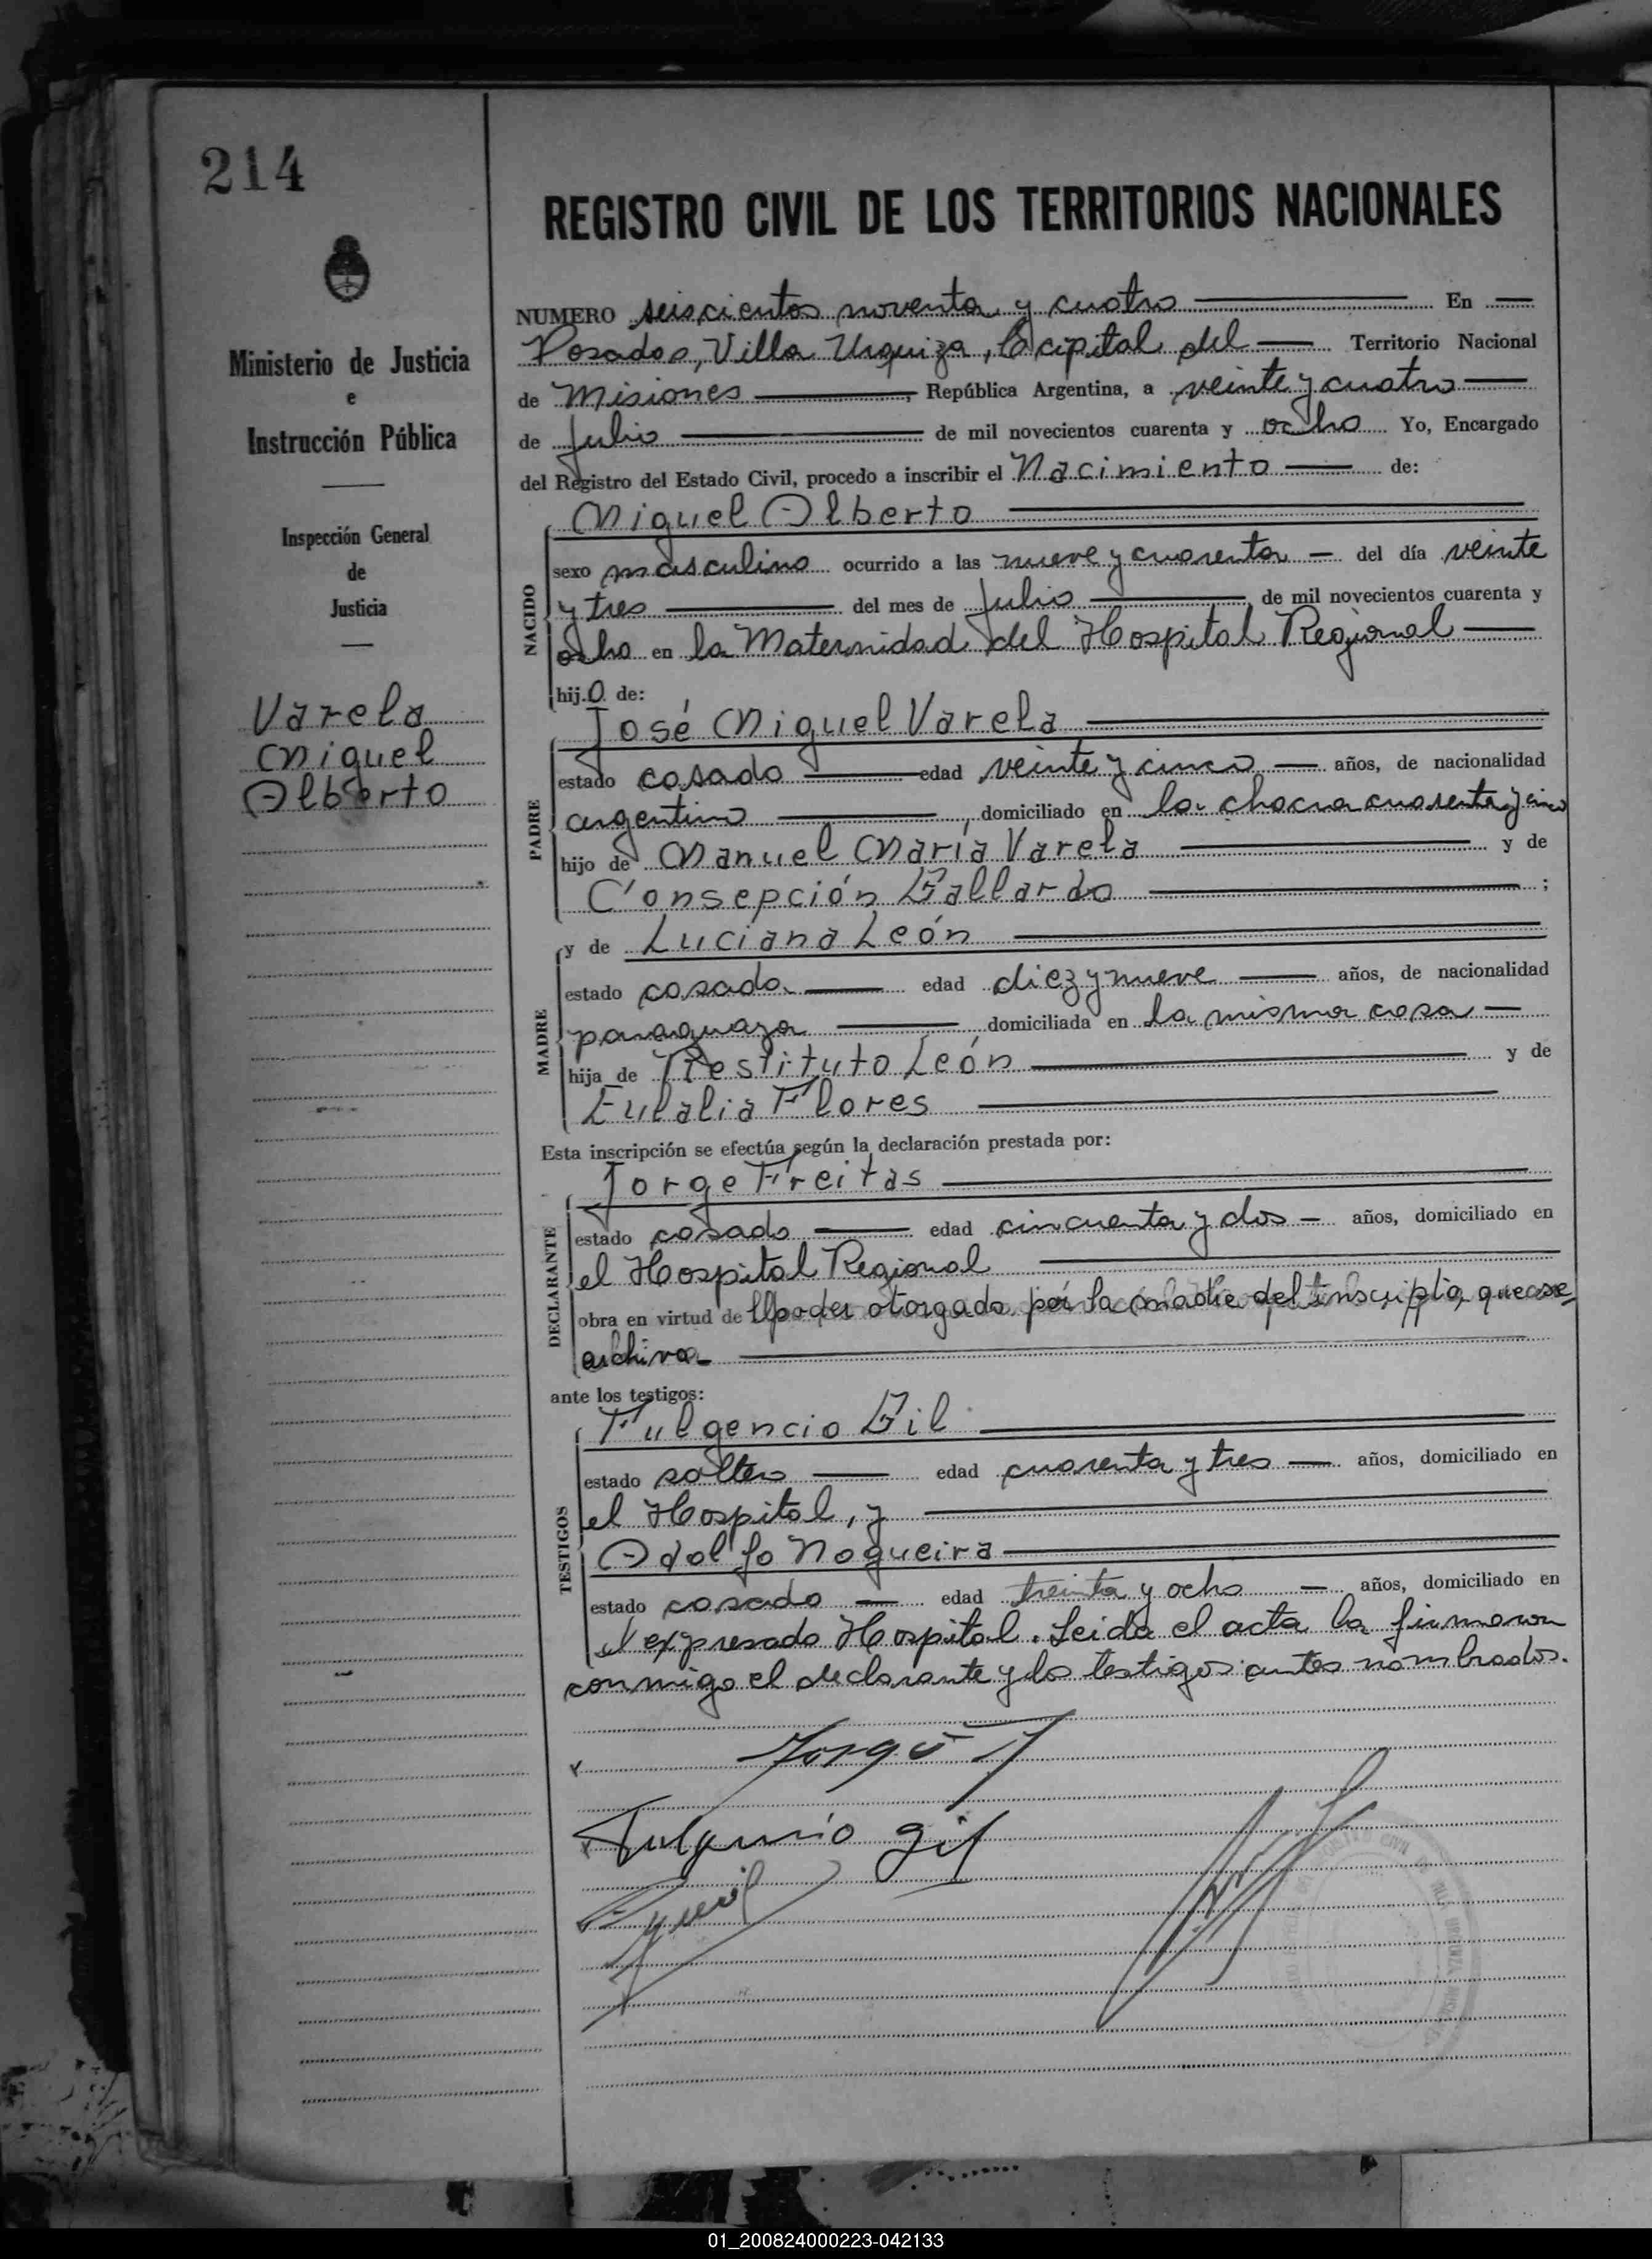 214
REGISTRO CIVIL DE LOS TERRITORIOS NACIONALES
Ministerio de Justicia
e
Instrucción Pública
Inspección General
de
Justicia
Varela
Miguel
Alberto
NUMERO seiscientos noventa y cuatro En
Posadas, Villa Urquiza, Capital del Territorio Nacional
de Misiones, República Argentina, a veinte y cuatro
de Julio de mil novecientos cuarenta y ocho Yo, Encargado
del Registro del Estado Civil, procedo a inscribir el Nacimiento de:
Miguel Alberto
NACIDO
sexo masculino ocurrido a las nueve y cuarenta del día veinte
y tres del mes de Julio de mil novecientos cuarenta y
ocho en la Maternidad del Hospital Regional
hijo de:
José Miguel Varela
PADRE
estado casado edad veinte y cinco años, de nacionalidad
argentino, domiciliado en la chacra cuarenta y cinco
hijo de Manuel María Varela y de
Consepción Gallardo ;
y de Luciana León
MADRE
estado casada edad diez y nueve años, de nacionalidad
paraguaya, domiciliada en la misma casa
hija de Restituto León y de
Eulalia Flores
Esta inscripción se efectúa según la declaración prestada por:
Jorge Freitas
DECLARANTE
estado casado edad cincuenta y dos años, domiciliado en
el Hospital Regional
obra en virtud de poder otorgado por la madre del inscripto, que se
archiva
ante los testigos:
Fulgencio Gil
TESTIGOS
estado soltero edad cuarenta y tres años, domiciliado en
el Hospital, y
Adolfo Nogueira
estado casado edad treinta y ocho años, domiciliado en
el expresado Hospital. Leida el acta la firmaron
conmigo el declarante y los testigos antes nombrados.
Jorge F
Fulgencio Gil
01_200824000223-042133